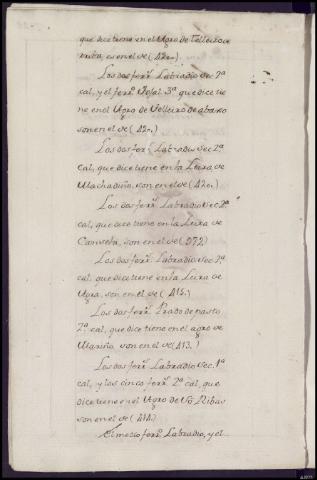 que dice tiene en el Agro de Telleiro de
arriba, es en el ve (420.)
Los dos ferr.s Labradio sec.o 2.a
cal, y el ferr.o Tojal 3.a que dice tie
ne en el Agro de Telleiro de abaxo
son en el ve (420.)
Los dos ferr.s Labradio sec.o 2.a
Cal, que dice tiene en la Leira de
Machadiña, son en el ve (420.)
Los dos ferr.s Labradio sec.o 2.a
cal, que dice tiene en la Leira de
son en el ve (372)
Los dos ferr.s Labradio sec.o 2.a
cal. que dice tiene en la Leira de
Agra, son en el ve (415.)
Los dos ferr.s Prado de pasto
2.a cal, que dice tiene en el agro de
Mariña son en el ve (413.)
Los dos ferr.s Labradio sec.o 1.a
cal, y los cinco ferr.s 2.a cal, que
dice tiene en el Agro de Ribas
son en el ve (414.)
El medio ferr.o Labradio, y el